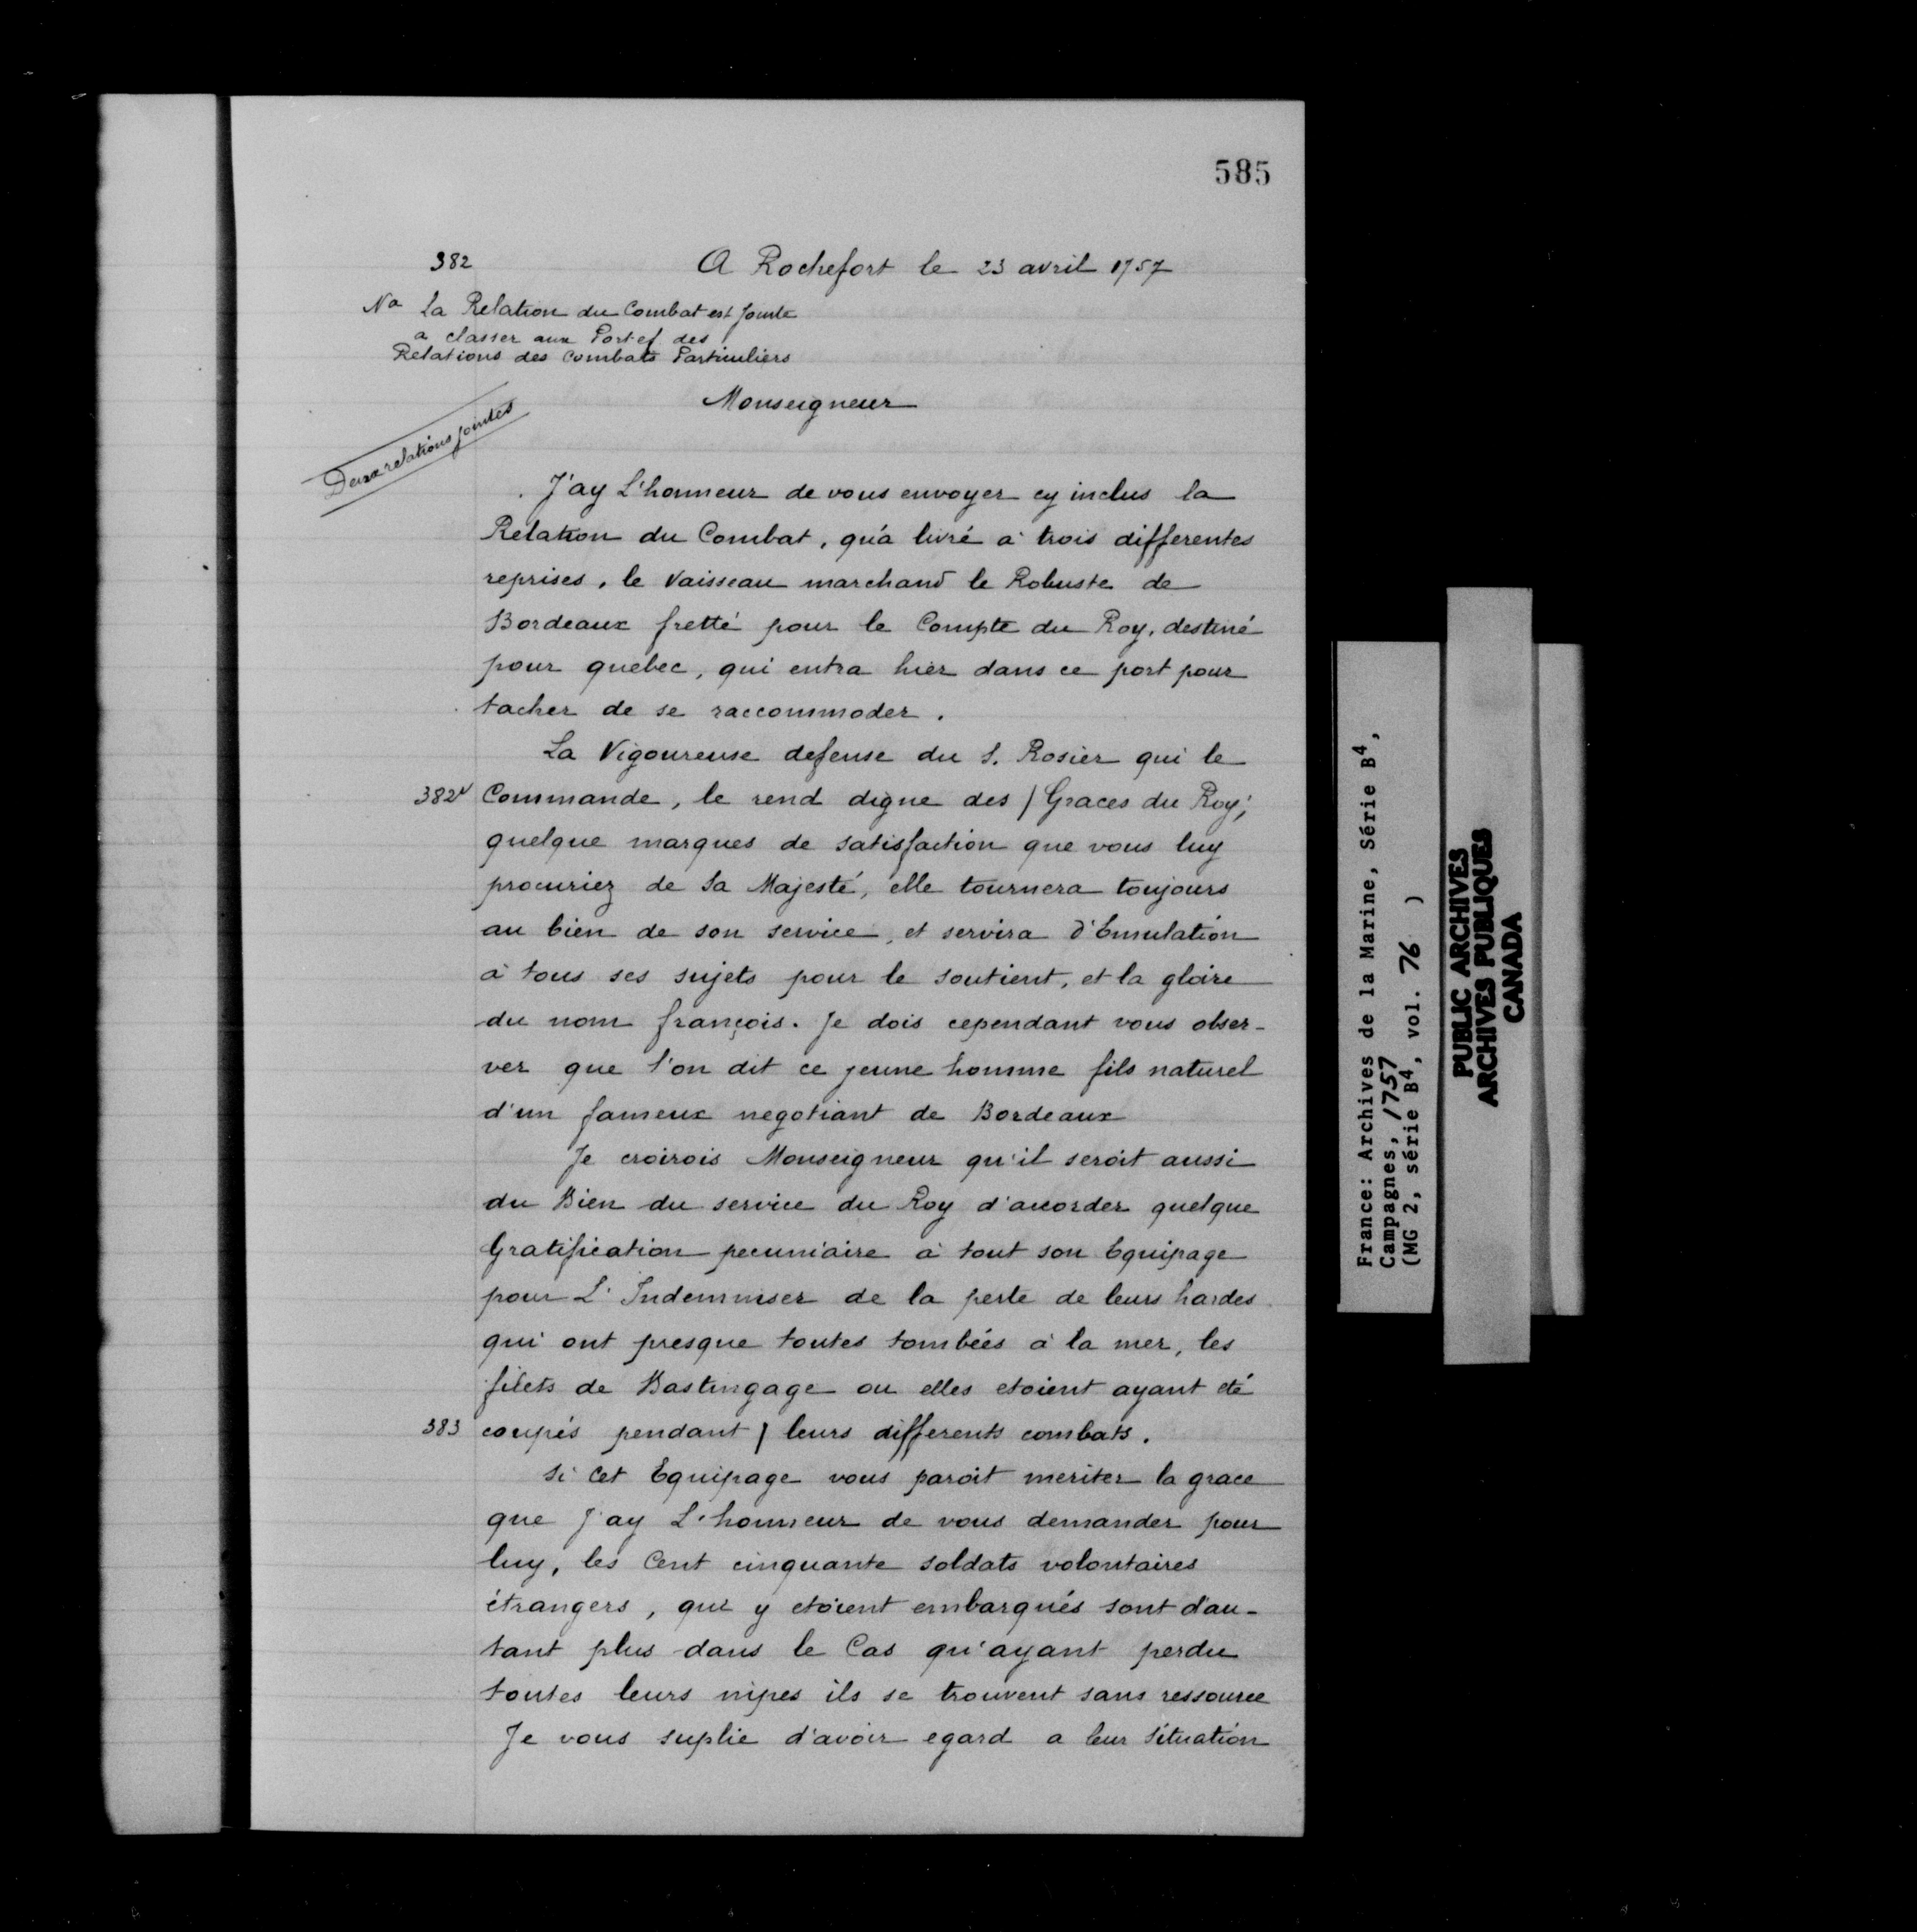 585
382
A Rochefort le 23 avril 1757
Na La Relation du Combat est jointe
a classer aux Portef des
Relations des Combats Particuliers
Monseigneur
Deux relations jointes
J'ay L'honneur de vous envoyer cy inclus la
Relation du Combat, qu'a livré à trois differentes
reprises, le Vaisseau marchand le Robuste de
Bordeaux fretté pour le Compte du Roy, destiné
pour quebec, qui entra hier dans ce port pour
tacher de se raccommoder.
La Vigoureuse defense du S. Rosier qui le
382v Commande, le rend digne des / Graces du Roy;
quelque marques de satisfaction que vous luy
procuriez de Sa Majesté, elle tournera toujours
au bien de son service, et servira d'Emulation
à tous ses sujets pour le soutient, et la gloire
du nom françois. Je dois cependant vous obser-
ver que l'on dit ce jeune homme fils naturel
d'un fameux negotiant de Bordeaux
Je croirois Monseigneur qu'il seroit aussi
du Bien du service du Roy d'accorder quelque
Gratification pecuniaire à tout son Equipage
pour L'Indemniser de la perte de leurs hardes
qui ont presque toutes tombées à la mer, les
filets de Bastingage ou elles etoient ayant eté
383 coupés pendant / leurs differents combats.
Si Cet Equipage vous paroit meriter la grace
que J'ay L'honneur de vous demander pour
luy, les Cent cinquante soldats volontaires
étrangers, qui y etoient embarqués sont d'au-
tant plus dans le Cas qu'ayant perdu
toutes leurs nipes ils se trouvent sans ressource
Je vous suplie d'avoir egard a leur Situation
France: Archives de la Marine, Série B4,
Campagnes, 1757
(MG 2, série B4, vol. 76 )
PUBLIC ARCHIVES
ARCHIVES PUBLIQUES
CANADA